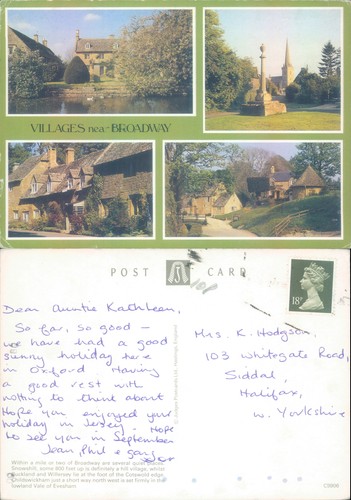 VILLAGES near BROADWAY
POST CARD
18P
Dear Auntie Kathleen,
So far, so good -
we have had a good
sunny holiday here
in Oxford. Having
a good rest with
nothing to think about
Hope you enjoyed your
holiday in Jersey. Hope
to see you in September
Jean, Phil & gan
Mrs. K. Hodgson,
103 Whitegate Road,
Siddal,
Halifax,
W. Yorkshire
Within a mile or two of Broadway are several quiet places.
Snowshill, some 800 foot up is definitely a hill village, whilst
Buckland and Willersey lie at the foot of the Cotswold edge.
Childswickham just a short way north west is set firmly in the
lowland Vale of Evesham